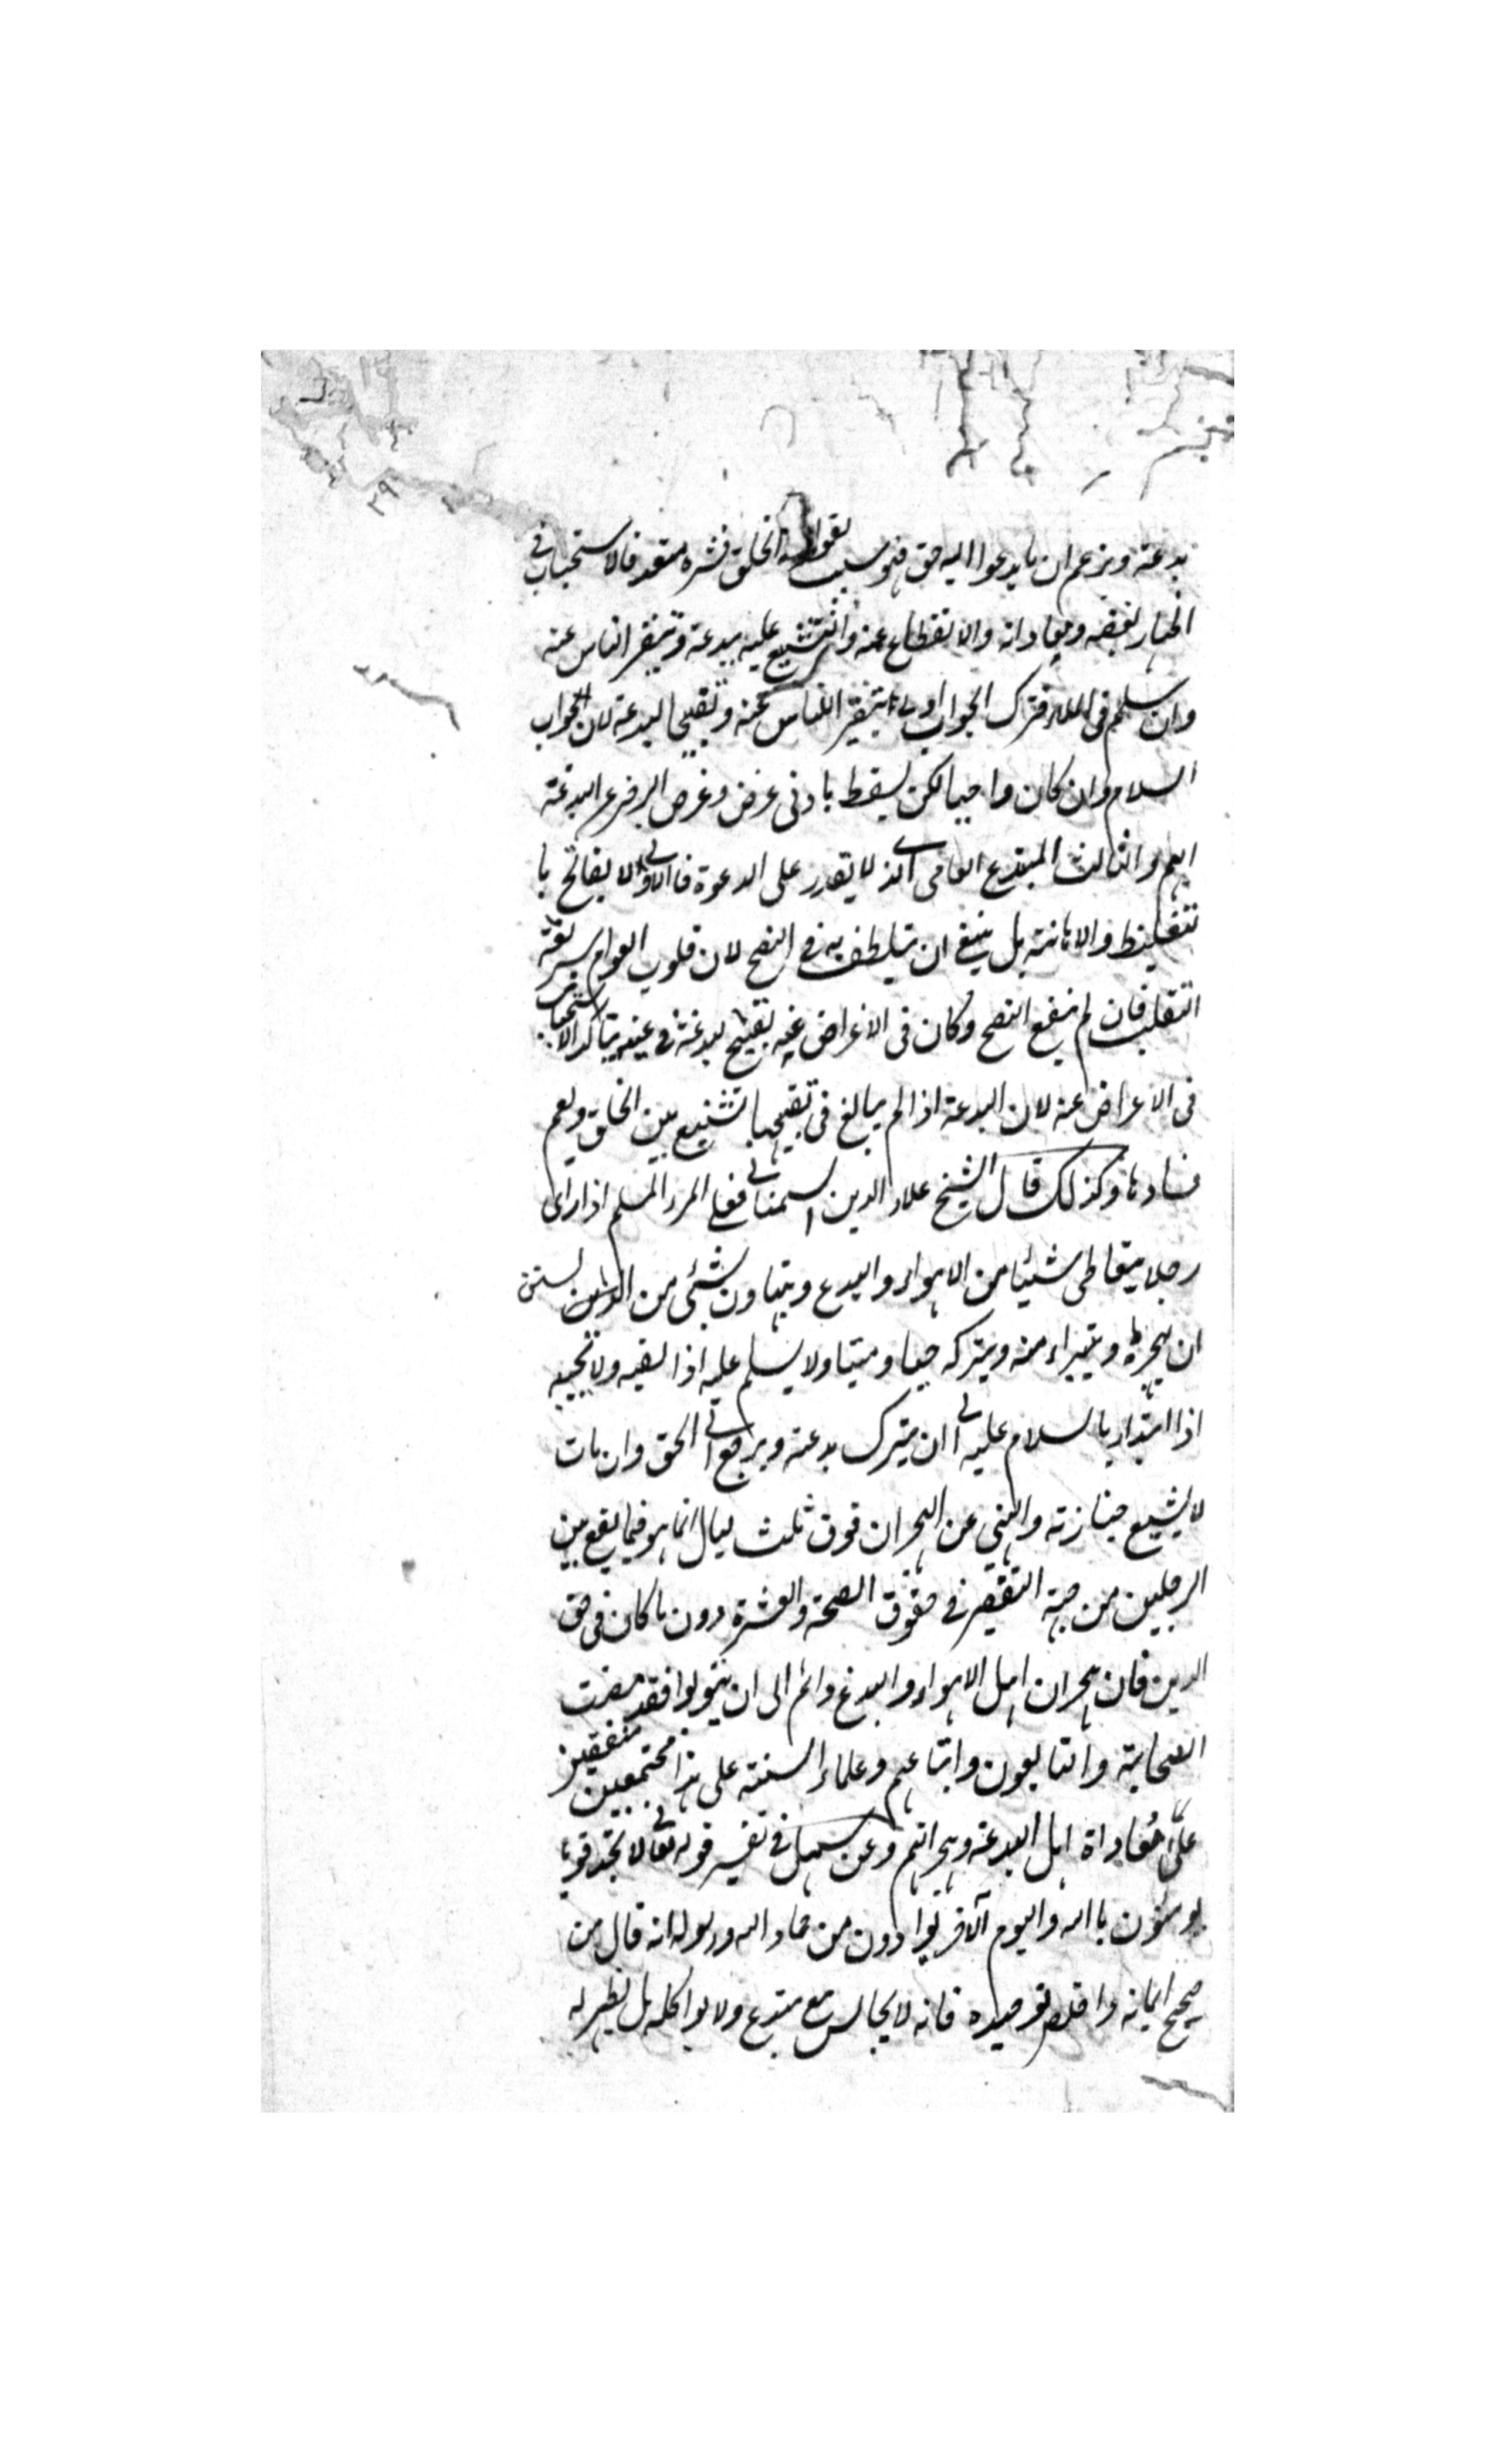 ٣٩
بدعته ويزعم ان ما يدعوا اليه حق فهو سبب لغواية الخلق فشره متعد فالاستحباب في
اظهار بغضه ومعاداته والانقطاع عنه والتشنيع عليه ببدعة وتنفير الناس عنه
وان سلم في الملاء فترك الجواب اولى تنفير الناس عنه وتقبيحا لبدعة لان الجواب
السلام وان كان واجبا لكن يسقط بادنى غرض وغرض الزجر عن البدعة
اهم والثالث المبتدع العامى الذى لا يقدر على الدعوة فالاولى لا يفاتح با
تتغليظ والاهانة بل ينبغى ان يتلطف به في النصح لان قلوب العوام سريعة
التقلب فان لم ينفع النصح وكان في الاعراض عنه تقبيح بدعته في عينه يتاكد الاستحباب
في الاعراض عنه لان البدعة اذا لم يبالغ في تقبيحها تشنيع بين الخلق ويعم
فسادها وكذلك قال الشيخ علاء الدين السمنانى فعلى المرء المسلم اذا راى
رجلا يتعاطى شيئا من الاهواء والبدع ويتهاون بشئى من السنن
ان يهجره ويتبراء منه ويتركه حيا وميتا ولا يسلم عليه اذا لقيه ولا يجيبه
اذا ابتداء بالسلام عليه الى ان يترك بدعته ويرجع الى الحق وان مات
لا يشيع جنازته والنهى عن الهجران فوق ثلث ليال انما هو فيما يقع بين
الرجلين من جهة التقصير في حقوق الصحبة والعشرة دون ما كان في حق
الدين فان هجران اهل الاهواء والبدع دائم الى ان يتوبوا فقد مضت
الصحابة والتابعون واتباعهم وعلماء السنة على هذا مجتمعين متفقين
على معاداة اهل البدعة وهجرانهم وعن سهل في تفسير قوله تعالى لا تجد قوما
يومنون بالله واليوم الآخر يوادون من حاد الله ورسوله انه قال من
صحح ايمانه واخلص توحيده فانه لا يجالس مع مبتدع ولا يواكله بل يظهر له